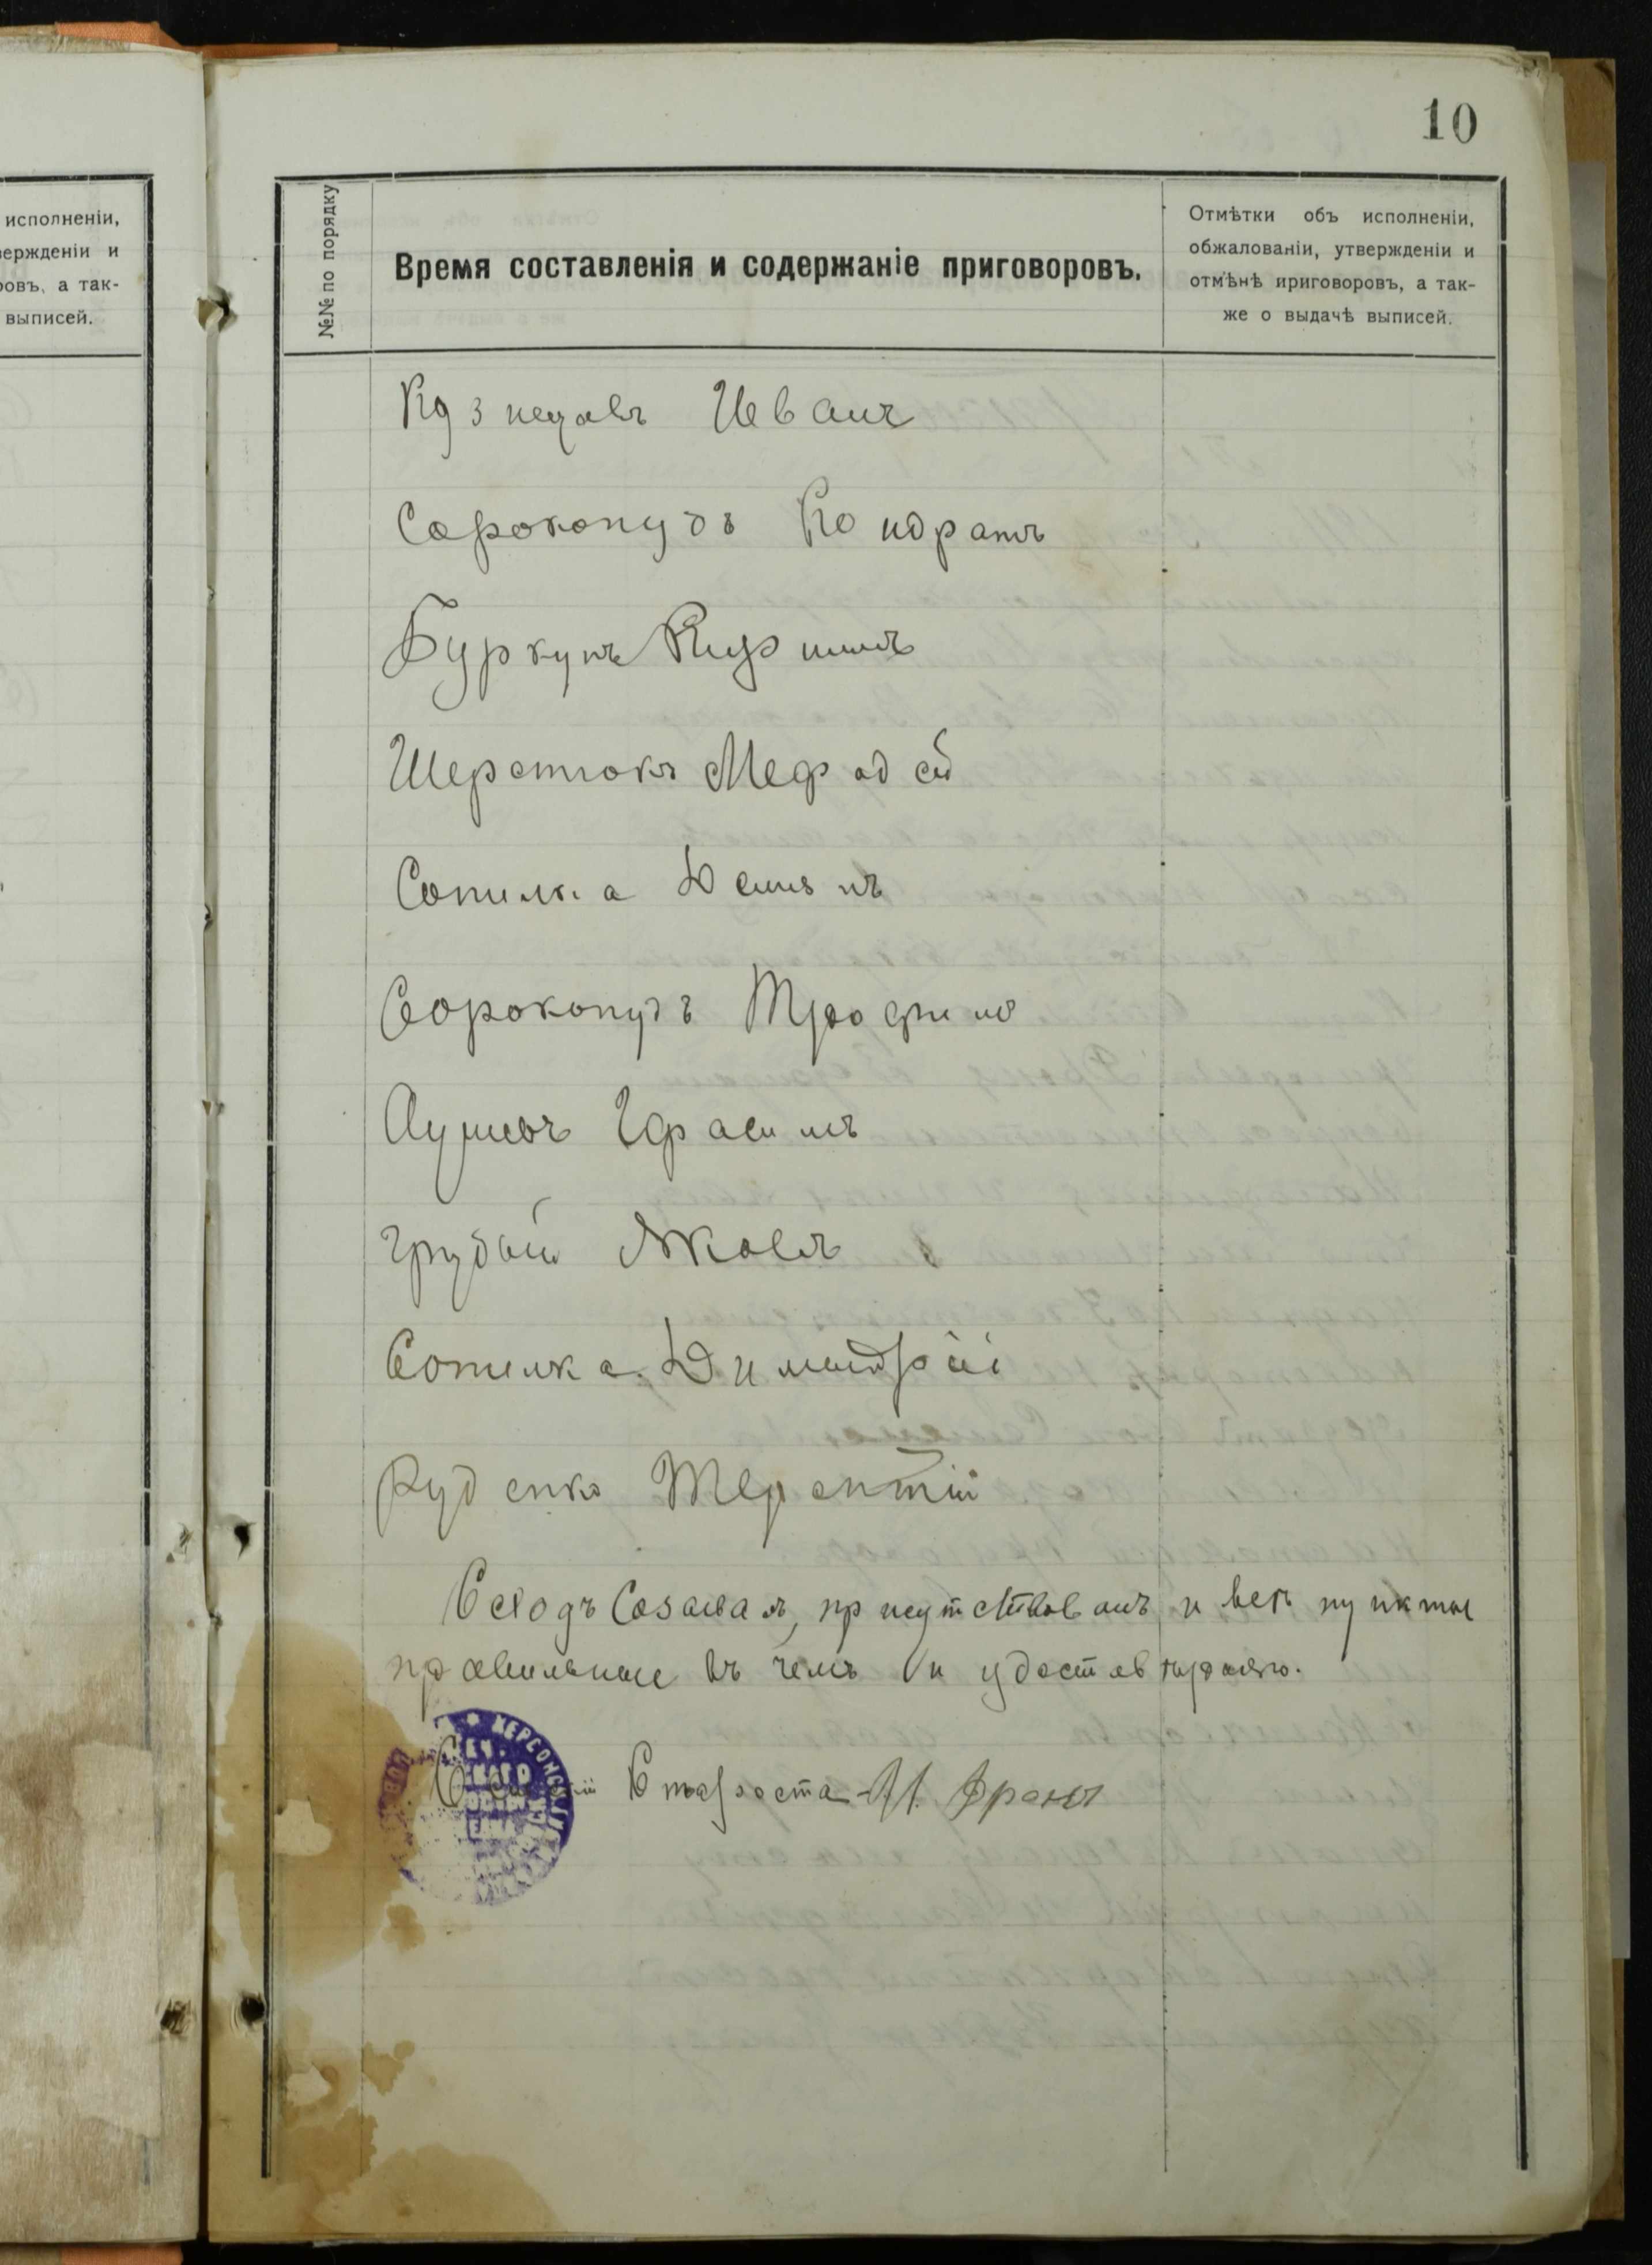 10
исполненіи,
вержденіи и
ровъ, а так-
выписей.
№№ по порядку
Время составленія и содержаніе приговоровъ.
Отмѣтки объ исполненіи,
обжалованіи, утвержденіи и
отмѣнѣ ириговоровъ, а так-
же о выдачѣ выписей.
Кузнецовъ Иванъ
Сорокопудъ Кондратъ
Буркунъ
Шерстюкъ Мефодей
Сопилка Демянъ
Сорокопудъ Трофимъ
Герасимъ
Грубый Яковъ
Сопилка Димитрій
Руденко Терентій
Сходъ Созывалъ, присутствовалъ и все пункты
правильные въ чемъ и удостоверяю.
ХЕРСОНСК
Староста И.